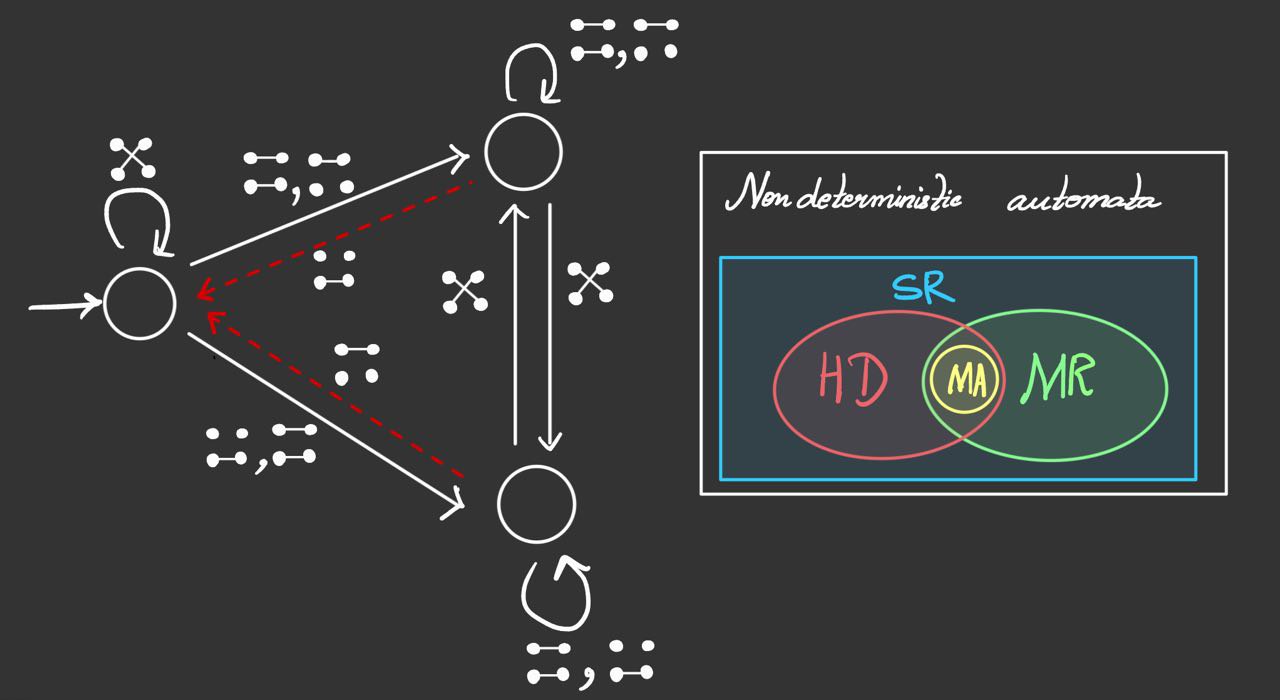 Nondeterministic automata
SR
HD MA MR